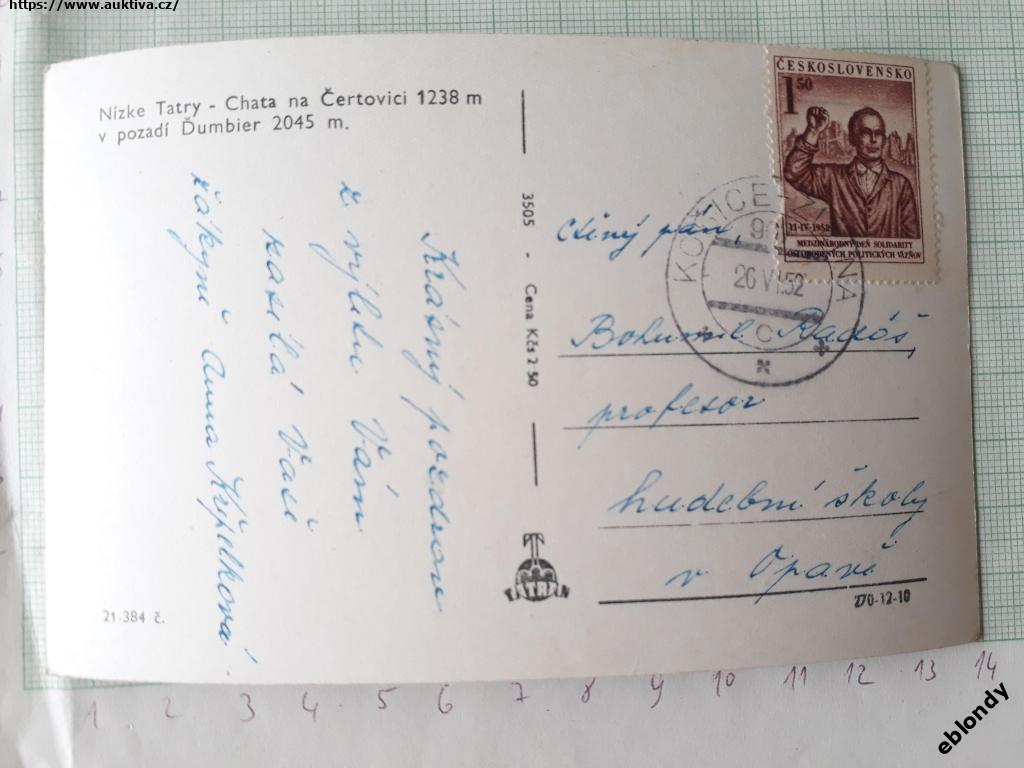 https://www.auktiva.cz/
Nízke Tatry - Chata na Čertovici 1238 m
v pozadí Ďumbier 2045 m.
Krásný pozdrav
z výletu Vám
zasílá Vaše
žákyně Anna Křepelková.
3505 - Cena Kčs 2·50
TATRAN
21-384 č.
ČESKOSLOVENSKO
1 50
11-IV-1952
MEDZINÁRODNÝ DEŇ SOLIDARITY
OSLOBODENÝCH POLITICKÝCH VÄZŇOV
KOŠICE
26 VI 52
C
Ctěný pán,
Bohumil
profesor
hudební školy
v Opavě
270-12-10
1 2 3 4 5 6 7 8 9 10 11 12 13 14
eblondy